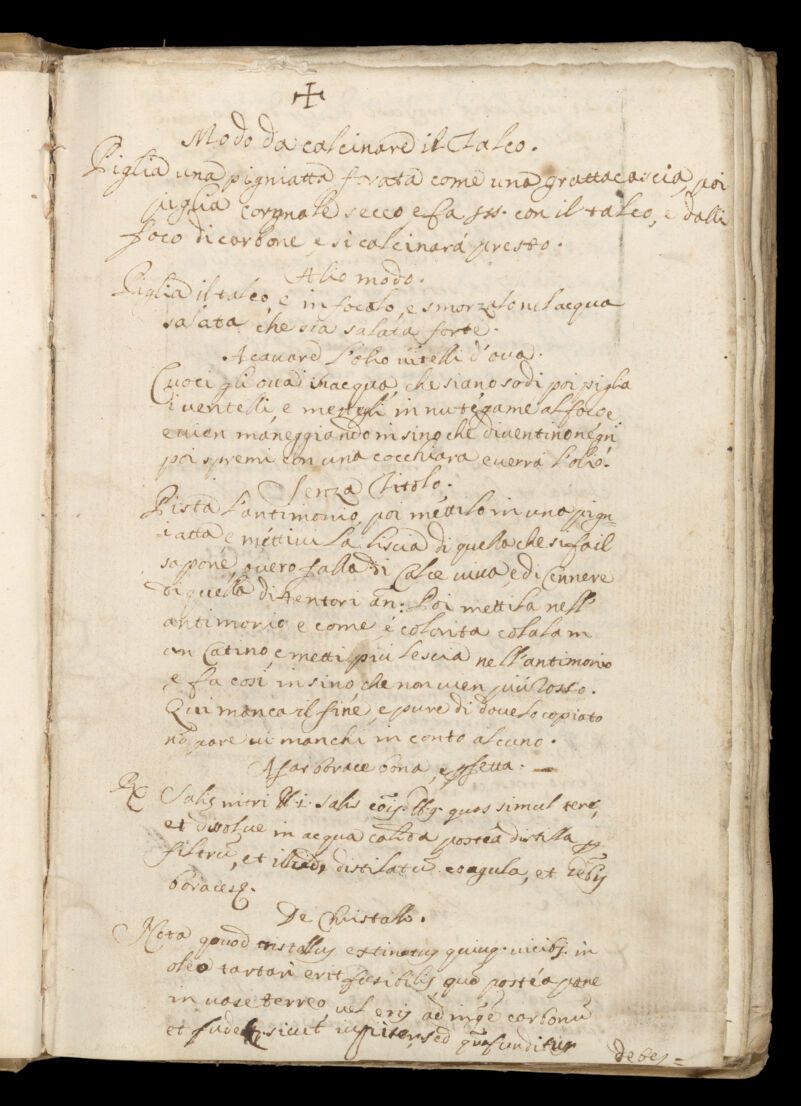 Modo da calcinare il Talco.
Piglia una pigniatta forata come una grattacascia, poi
piglia secco e fa sss. con il talco, e dalli
foco di carbone, e si calcinará presto.
Alio modo.
Piglia il talco, e infocalo, e smorzalo nel acqua
salata che sia salata forte.
A cavare l'olio vitelli d'ova.
Cuoci gli ova in acqua, che siano sodi poi piglia
i ventelli, e mettegli in nu tégame al foco e
e vien maneggiando in sino che diventino négri
poi spremi con una cocchiara e verrá l'olio.
Senza Titolo.
Pista l'antimonio, poi méttilo in una pign-
iatta e méttivi la liscia di quella che si fa il
saponé, overo falla di Calce viva e di Cennere
di quella di tentori an: Poi mettila nell'
antimonio e come é colorita colala in
un Catino, e metti piú lescia nell'antimonio
e fa cosi, in sino che non vien piú Rosso.
Qui manca il finé, e pure di dove lo copiato
nó pare vi manchi in conto alcuno.
A far borace bona, e pfetta.
Salis nitri salis quas simul tere,
et dissolue in acqua calida postea distilla p
filtrũ, et distilatũ coagula, et
boraces.
De Christallo.
Nota quod cristallus extinctus quinq. vicibj. in
oleo tartari erit fusibilis, quo postéa pone
in vase terreo, vel ad ignẽ carbonũ
et sicut iupiter, sed funditur
debes=